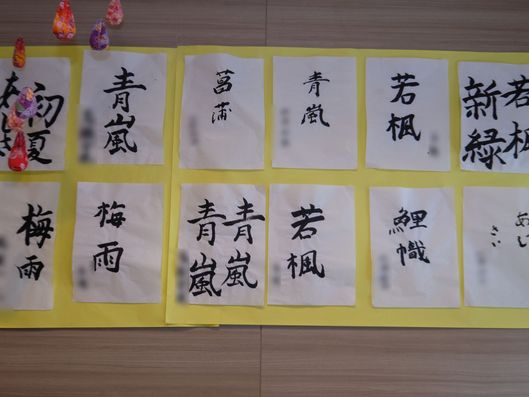 初夏
青嵐
菖蒲
青嵐
若楓
若楓
新緑
梅雨
梅雨
青嵐
青嵐
若楓
鯉幟